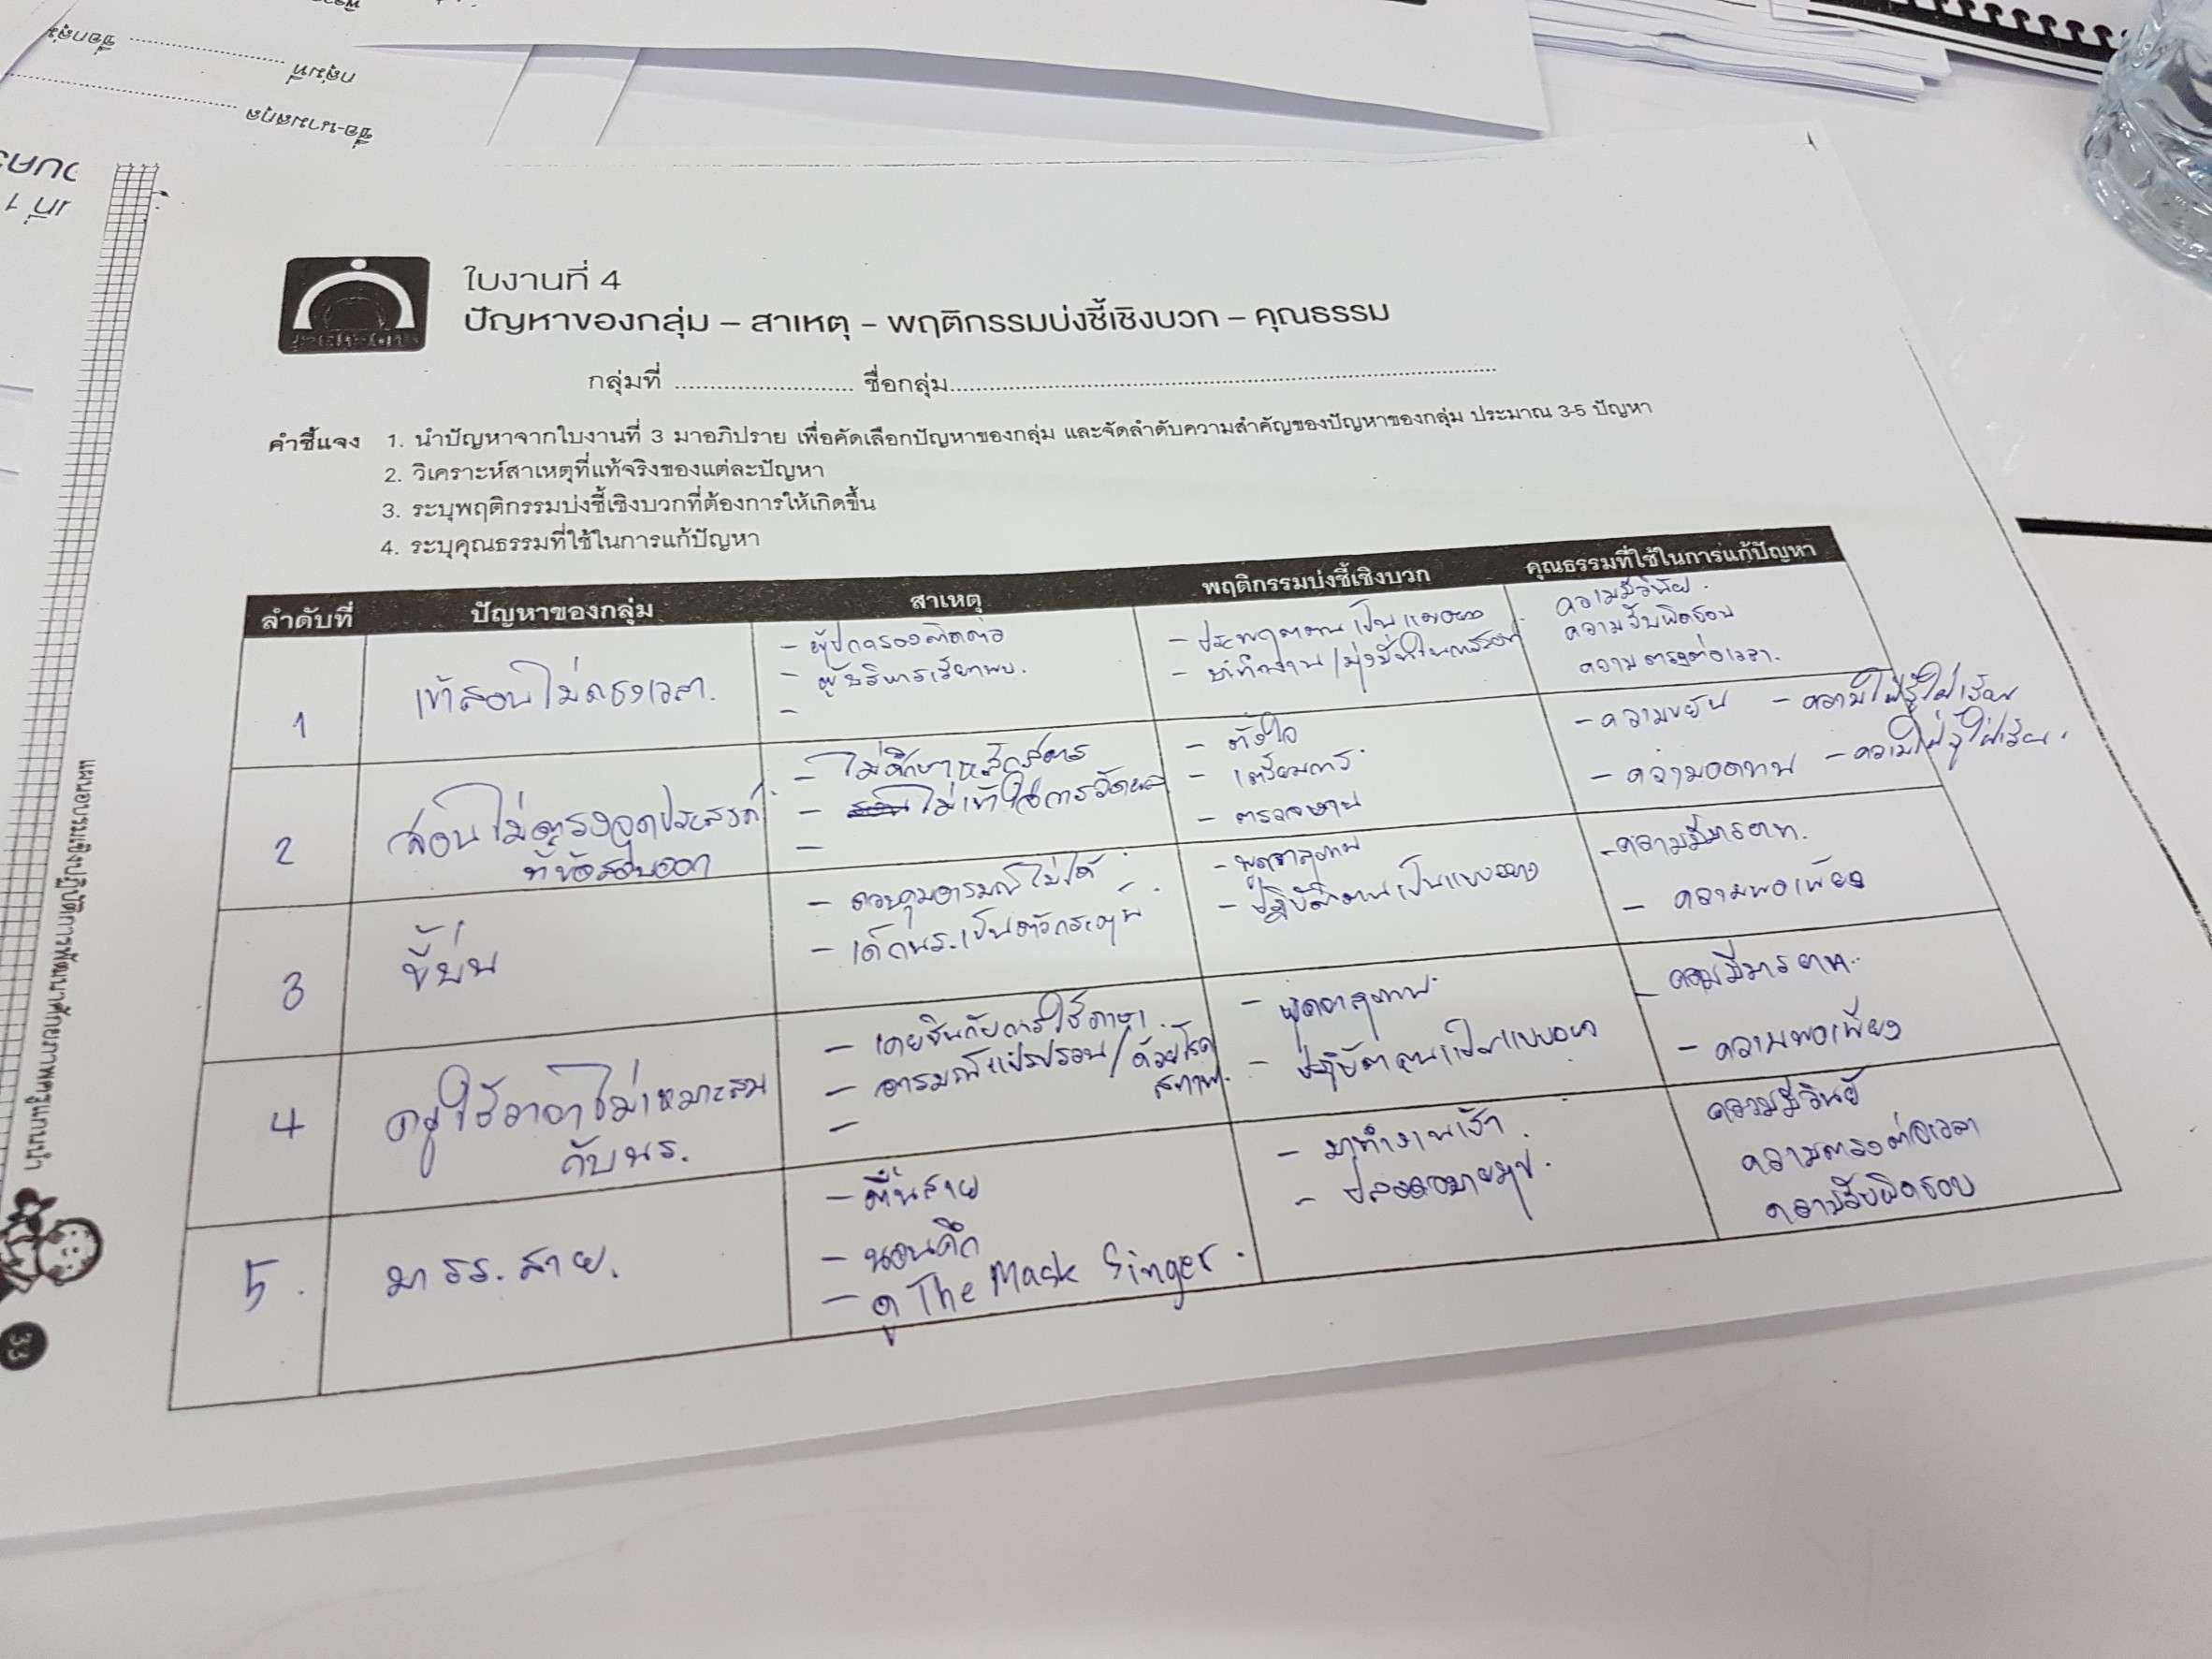 ชื่อกลุ่ม
กลุ่มที่
ชื่อ-นามสกุล
ที่ 1
ใบงานที่ 4
ปัญหาของกลุ่ม – สาเหตุ – พฤติกรรมบ่งชี้เชิงบวก – คุณธรรม
กลุ่มที่ .......................... ชื่อกลุ่ม................................................................................
คำชี้แจง 1. นำปัญหาจากใบงานที่ 3 มาอภิปราย เพื่อคัดเลือกปัญหาของกลุ่ม และจัดลำดับความสำคัญของปัญหาของกลุ่ม ประมาณ 3-5 ปัญหา
2. วิเคราะห์สาเหตุที่แท้จริงของแต่ละปัญหา
3. ระบุพฤติกรรมบ่งชี้เชิงบวกที่ต้องการให้เกิดขึ้น
4. ระบุคุณธรรมที่ใช้ในการแก้ปัญหา
ลำดับที่ ปัญหาของกลุ่ม สาเหตุ พฤติกรรมบ่งชี้เชิงบวก คุณธรรมที่ใช้ในการแก้ปัญหา
1
เข้าสอนไม่ตรงเวลา.
- ผู้ปกครองติดต่อ
- ผู้บริหารเรียกพบ.
-
- ประพฤตตนเป็นแบบอย่าง
/มุ่งมั่นในการสอน
ความมีวินัย.
ความรับผิดชอบ
ความตรงต่อเวลา.
2
สอนไม่ตรงจุดประสงค์
ที่ข้อสอบออก
- ไม่ศึกษาหลักสูตร
- ไม่เข้าใจการวัดผล
-
- ตั้งใจ
- เตรียมการ.
- ตรวจงาน
- ความขยัน - ความใฝ่รู้ใฝ่เรียน
- ความอดทน - ความใฝ่รู้ใฝ่เรียน.
3
ขี้บ่น
- ควบคุมอารมณ์ไม่ได้
- เด็กนร.เป็นตัวกระตุ้น
- พูดจาสุภาพ
- ปฏิบัติตนเป็นแบบอย่าง
- ความมีมารยาท.
- ความพอเพียง
4
ครูใช้วาจาไม่เหมาะสม
กับนร.
- เคยชินกับการใช้ภาษา
- อารมณ์แปรปรวน/ด้วยโรค
สภาพ.
-
- พูดจาสุภาพ.
- ปฏิบัติตนเป็นแบบอย่าง
- ความมีมารยาท.
- ความพอเพียง
5.
มา รร. สาย.
- ตื่นสาย
- นอนดึก
- ดู The Mask Singer.
- มาทำงานเช้า.
- ปลอดอบายมุข.
ความมีวินัย
ความตรงต่อเวลา
ความรับผิดชอบ
แผนอบรมเชิงปฏิบัติการพัฒนาศักยภาพครูแกนนำ
33